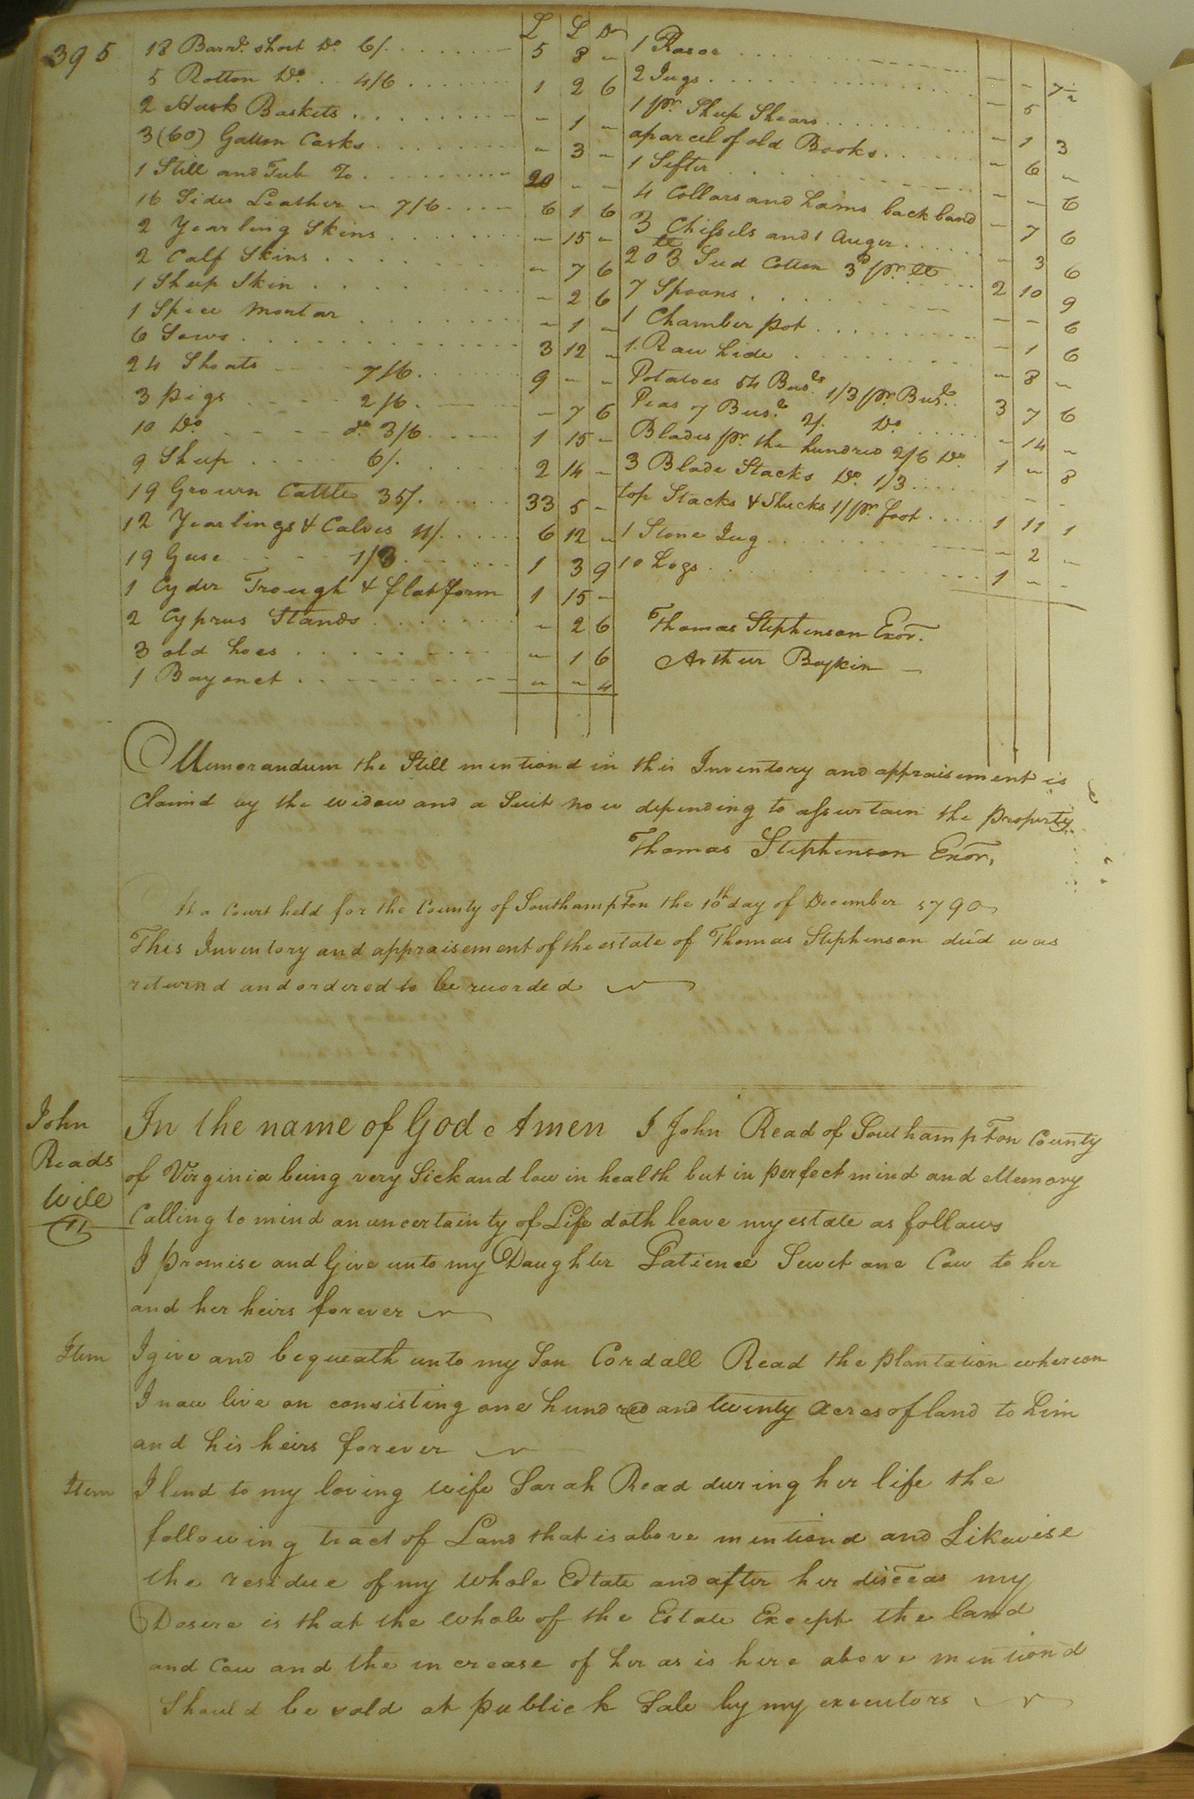 395
L S D
18 Barrs. short Do. 6/. 5 8 -
5 Rotton Do. 4/6 1 2 6
2 Husk Baskets - 1 -
3 (60) Gallon Casks - 3 -
1 Still and Tub &c 20 - -
16 Sides Leather - 7/6 6 1 6
2 Yearling Skins - 15 -
2 Calf Skins - 7 6
1 Sheep Skin - 2 6
1 Spice Mortar - 1 -
6 Sows 3 12 -
24 Shoats 7/6 9 - -
3 Pigs 2/6 - 7 6
10 Do. do. 3/6 1 15 -
9 Sheep 6/. 2 14 -
19 Grown Cattle 35/. 33 5 -
12 Yearlings & Calves 11/. 6 12 -
19 Geese 1/3 1 3 9
1 Cyder Trough & flatform 1 15 -
2 Cyprus Stands - 2 6
3 old hoes - 1 6
1 Bayonet - - 4
1 Rasor - - 7½
2 Jugs - 5
1 pr. Sheep Shears - 1 3
a parcel of old Books - 6 -
1 Sifter - - 6
4 Collars and hams back band - 7 6
3 Chissels and 1 Auger - 3 6
203 lb Seed Cotton 3d pr. lb 2 10 9
7 Spoons - - 6
1 Chamber pot - 1 6
1 Raw hide - 8 -
Potatoes 54 Buss. 1/3 pr. Bus. 3 7 6
Peas 7 Bus. 2/. Do. - 14 -
Blades pr. the hundred 2/6 Do. 1 - 8
3 Blade Stacks Do. 1/3
top Stacks & Shucks 1/ pr. foot 1 11 1
1 Stone Jug - 2 -
10 Logs 1 - -
Thomas Stephenson Exor.
Arthur Boykin
Memorandum the Still mentiond in this Inventory and appraisement is
Claimd by the widow and a Suit now depending to assertain the property
Thomas Stephenson Exor.
At a Court held for the County of Southampton the 10th day of December 1790
This Inventory and appraisement of the estate of Thomas Stephenson decd was
returnd and ordered to be recorded
John
Reads
Will
In the name of God Amen I John Read of Southampton County
of Virginia being very Sick and low in health but in perfect mind and Memory
Calling to mind an uncertainty of Life doth leave my estate as follows
I promise and Give unto my Daughter Patience Sweet one Cow to her
and her heirs forever
Item I give and bequeath unto my Son Cordall Read the plantation whereon
I now live on consisting one hundred and twenty acres of land to him
and his heirs forever
Item I lend to my loving wife Sarah Read during her life the
following tract of Land that is above mentiond and Likewise
the residue of my whole Estate and after her diseeas my
Desire is that the whole of the Estate Except the land
and Cow and the increase of her as is here above mentiond
Should be sold at publick Sale by my executors